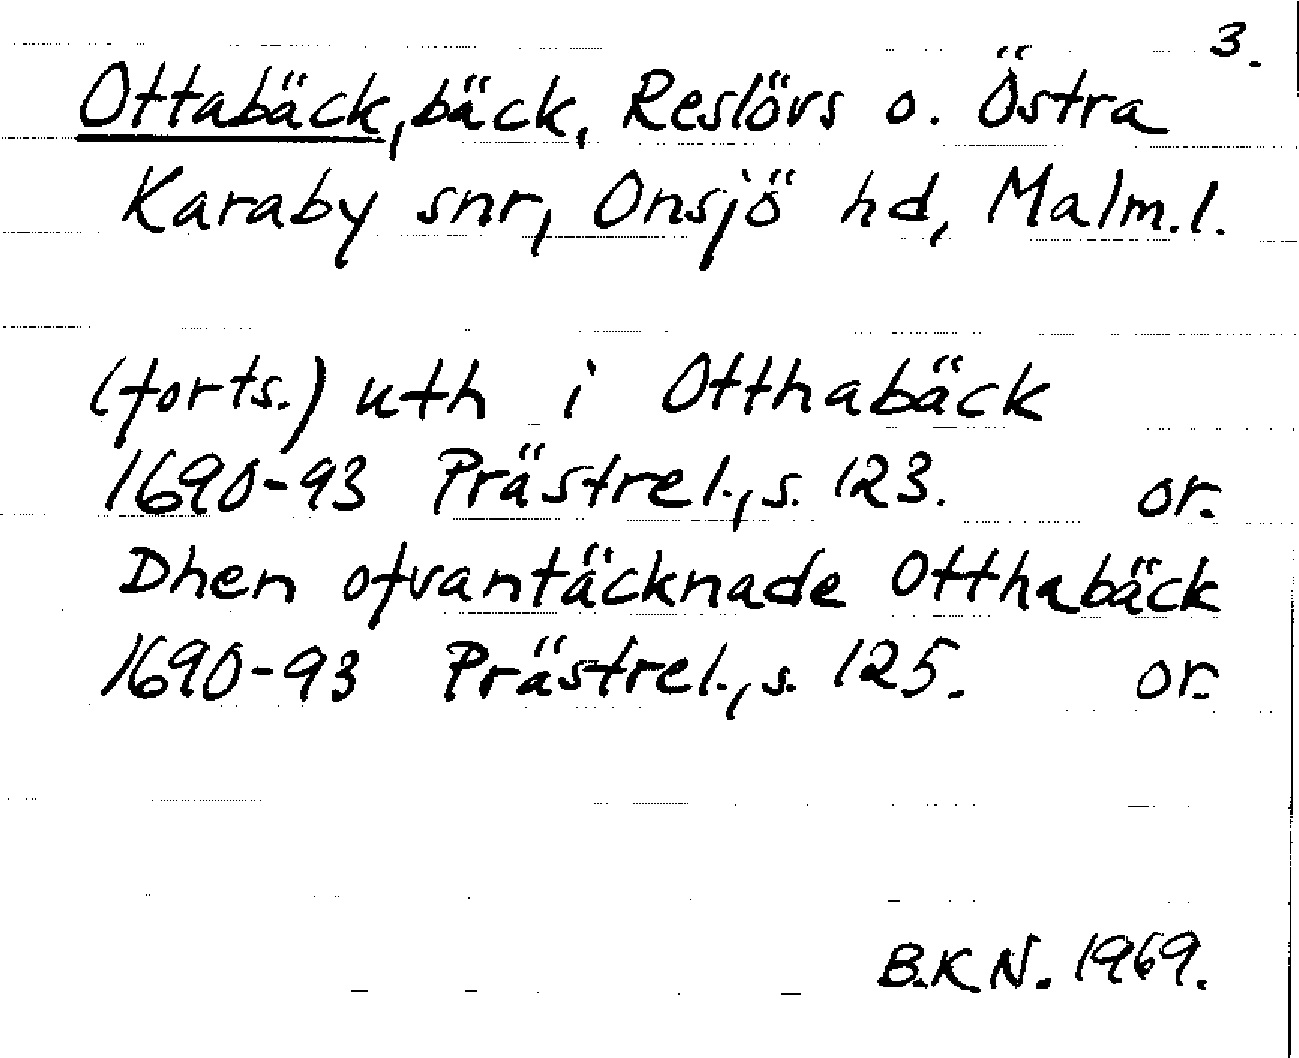 3.
Ottabäck, bäck, Reslövs o. Östra
Karaby snr, Onsjö hd, Malm.l.
(forts.) uth i Otthabäck
1690-93 Prästrel., s. 123. or.
Dhen ofvantäcknade Otthabäck
1690-93 Prästrel., s. 125. or.
B.K.N. 1969.